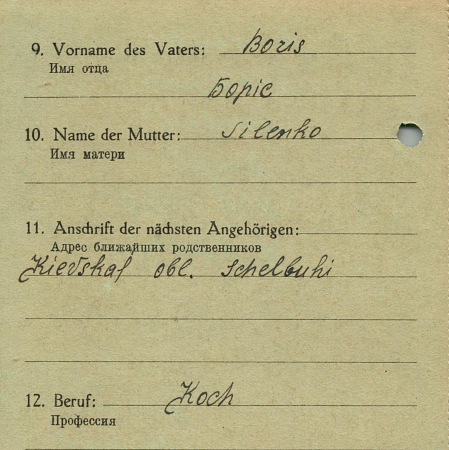 9. Vorname des Vaters: Boris
Имя отца
Боріс
10. Name der Mutter: Silenko
Имя матери
11. Anschrift der nächsten Angehörigen:
Адрес ближайших родственников
Kievskaj obl. Schelbuhi
12. Beruf: Koch
Профессия